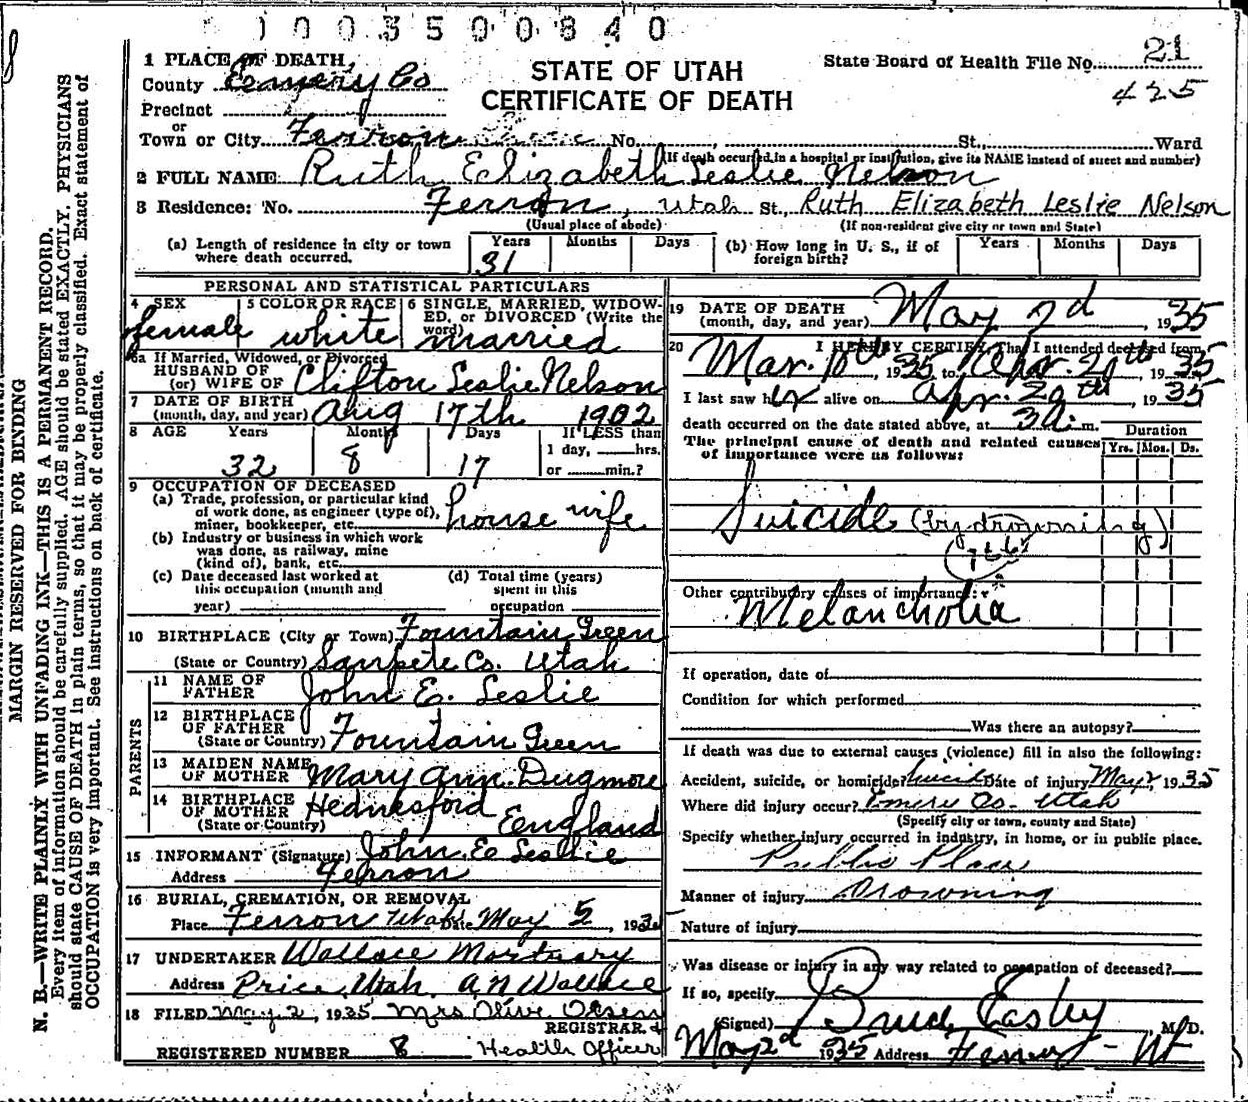 1003500840
1 PLACE OF DEATH,
County Emery Co
STATE OF UTAH
CERTIFICATE OF DEATH
State Board of Health File No. 21
425
Precinct
or
Town or City Ferron No. , St., Ward
(If death occurred in a hospital or institution, give its NAME instead of street and number)
2 FULL NAME Ruth Elizabeth Leslie Nelson
3 Residence: No. Ferron, Utah St., Ruth Elizabeth Leslie Nelson
(Usual place of abode) (If non-resident give city or town and State)
(a) Length of residence in city or town where death occurred. Years 31 Months Days
(b) How long in U. S., if of foreign birth? Years Months Days
PERSONAL AND STATISTICAL PARTICULARS
4 SEX female
5 COLOR OR RACE white
6 SINGLE, MARRIED, WIDOWED, or DIVORCED (Write the word) married
6a If Married, Widowed, or Divorced
HUSBAND OF
(or) WIFE OF Clifton Leslie Nelson
7 DATE OF BIRTH
(month, day, and year) Aug 17th 1902
8 AGE Years 32 Months 8 Days 17 If LESS than 1 day, hrs. or min.?
9 OCCUPATION OF DECEASED
(a) Trade, profession, or particular kind of work done, as engineer (type of), miner, bookkeeper, etc. house wife
(b) Industry or business in which work was done, as railway, mine (kind of), bank, etc.
(c) Date deceased last worked at this occupation (month and year)
(d) Total time (years) spent in this occupation
10 BIRTHPLACE (City or Town) Fountain Green
(State or Country) Sanpete Co. Utah
PARENTS
11 NAME OF FATHER John E. Leslie
12 BIRTHPLACE OF FATHER
(State or Country) Fountain Green
13 MAIDEN NAME OF MOTHER Mary Ann Dugmore
14 BIRTHPLACE OF MOTHER
(State or Country) Hednesford England
15 INFORMANT (Signature) John E Leslie
Address Ferron
16 BURIAL, CREMATION, OR REMOVAL
Place Ferron Utah Date May 5, 1935
17 UNDERTAKER Wallace Mortuary
Address Price, Utah. A N Wallace
18 FILED May 2, 1935 Mrs Olive Olsen
REGISTRAR &
REGISTERED NUMBER 8 Health Officer
19 DATE OF DEATH
(month, day, and year) May 2d, 1935
20 I HEREBY CERTIFY, That I attended deceased from
Mar. , 1935 to Apr. 29th, 1935
I last saw her alive on Apr. 29th, 1935
death occurred on the date stated above, at m. Duration
The principal cause of death and related causes of importance were as follows: Yrs. Mos. Ds.
Suicide (by drowning)
Other contributory causes of importance:
Melancholia
If operation, date of
Condition for which performed
Was there an autopsy?
If death was due to external causes (violence) fill in also the following:
Accident, suicide, or homicide? Suicide Date of injury May 2, 1935
Where did injury occur? Emery Co. Utah
(Specify city or town, county and State)
Specify whether injury occurred in industry, in home, or in public place.
Public Place
Manner of injury Drowning
Nature of injury
Was disease or injury in any way related to occupation of deceased?
If so, specify
(Signed) Bruce Easley, M. D.
May 2d 1935 Address Ferron - Ut
MARGIN RESERVED FOR BINDING
N. B.—WRITE PLAINLY WITH UNFADING INK—THIS IS A PERMANENT RECORD.
Every item of information should be carefully supplied. AGE should be stated EXACTLY. PHYSICIANS
should state CAUSE OF DEATH in plain terms, so that it may be properly classified. Exact statement of
OCCUPATION is very important. See instructions on back of certificate.